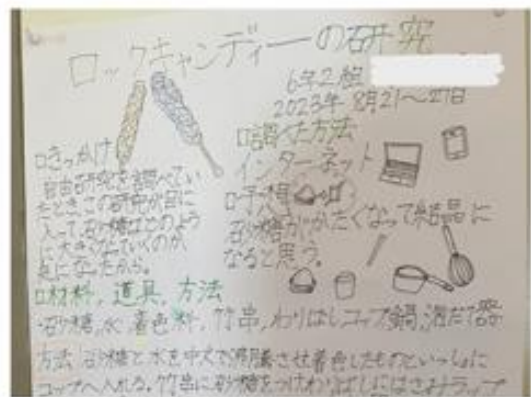 ロックキャンディーの研究
6年2組
2023年 8月21〜27日
ロきっかけ
自由研究を調べてい
たとき、この研究が目に
入って、砂糖はどのよう
に大きくなていくのか
気になったから。
ロ調べた方法
インターネット
ロ予想
砂糖がかたくなって結晶に
なると思う。
ロ材料、道具、方法
・砂糖、水、着色料、竹串、わりばし、コップ、鍋、泡だて器
方法 砂糖と水を中火で沸騰させ着色したものといっしょに
コップへ入れる。竹串に砂糖をつけわりばしにはさみラップ